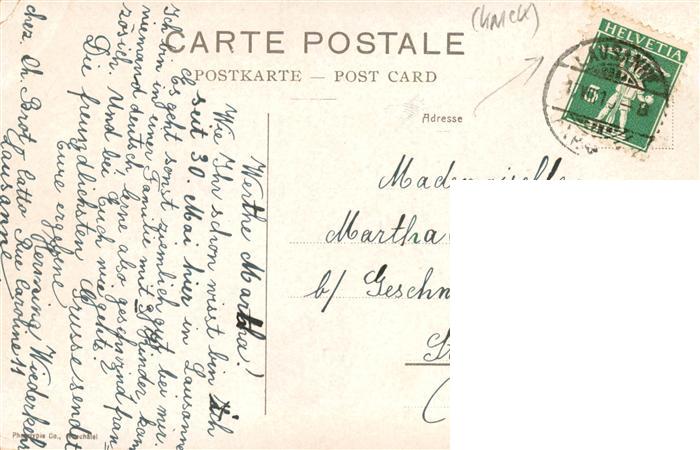 (KNICK)
CARTE POSTALE
POSTKARTE — POST CARD
Adresse
HELVETIA
5
LAUSANNE
Mademoiselle
Martha
b/ Geschw
Werthe Martha!
Wie Ihr schon wisst bin ich
seit 30. Mai hier in Lausanne
Es geht sonst ziemlich gut bei mir.
Ich bin in einer Familie mit 3 Kinder, kann
niemand deutsch, lerne also geschwind fran-
zösich. Und bei Euch wie gehts?
Die freundlichsten Grüsse sendet
Eure ergebene
Wiederkehr
chez. Ch. Rue Caroline 11
Lausanne
Phototypie Co., Neuchâtel